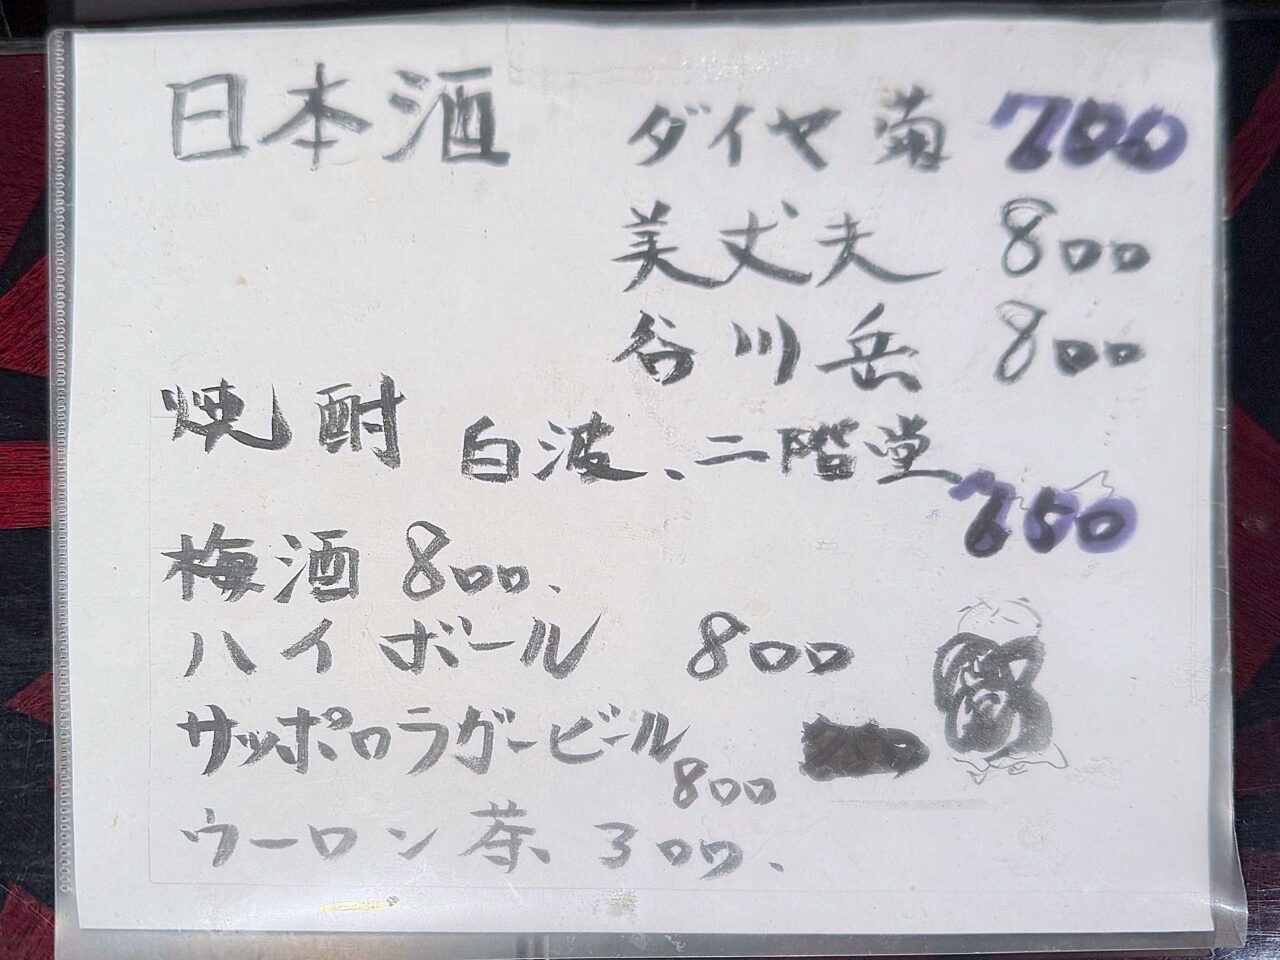 日本酒 ダイヤ菊 700
美丈夫 800
谷川岳 800
焼酎 白波、二階堂
650
梅酒 800、
ハイボール 800
サッポロラガービール
800
ウーロン茶、300、